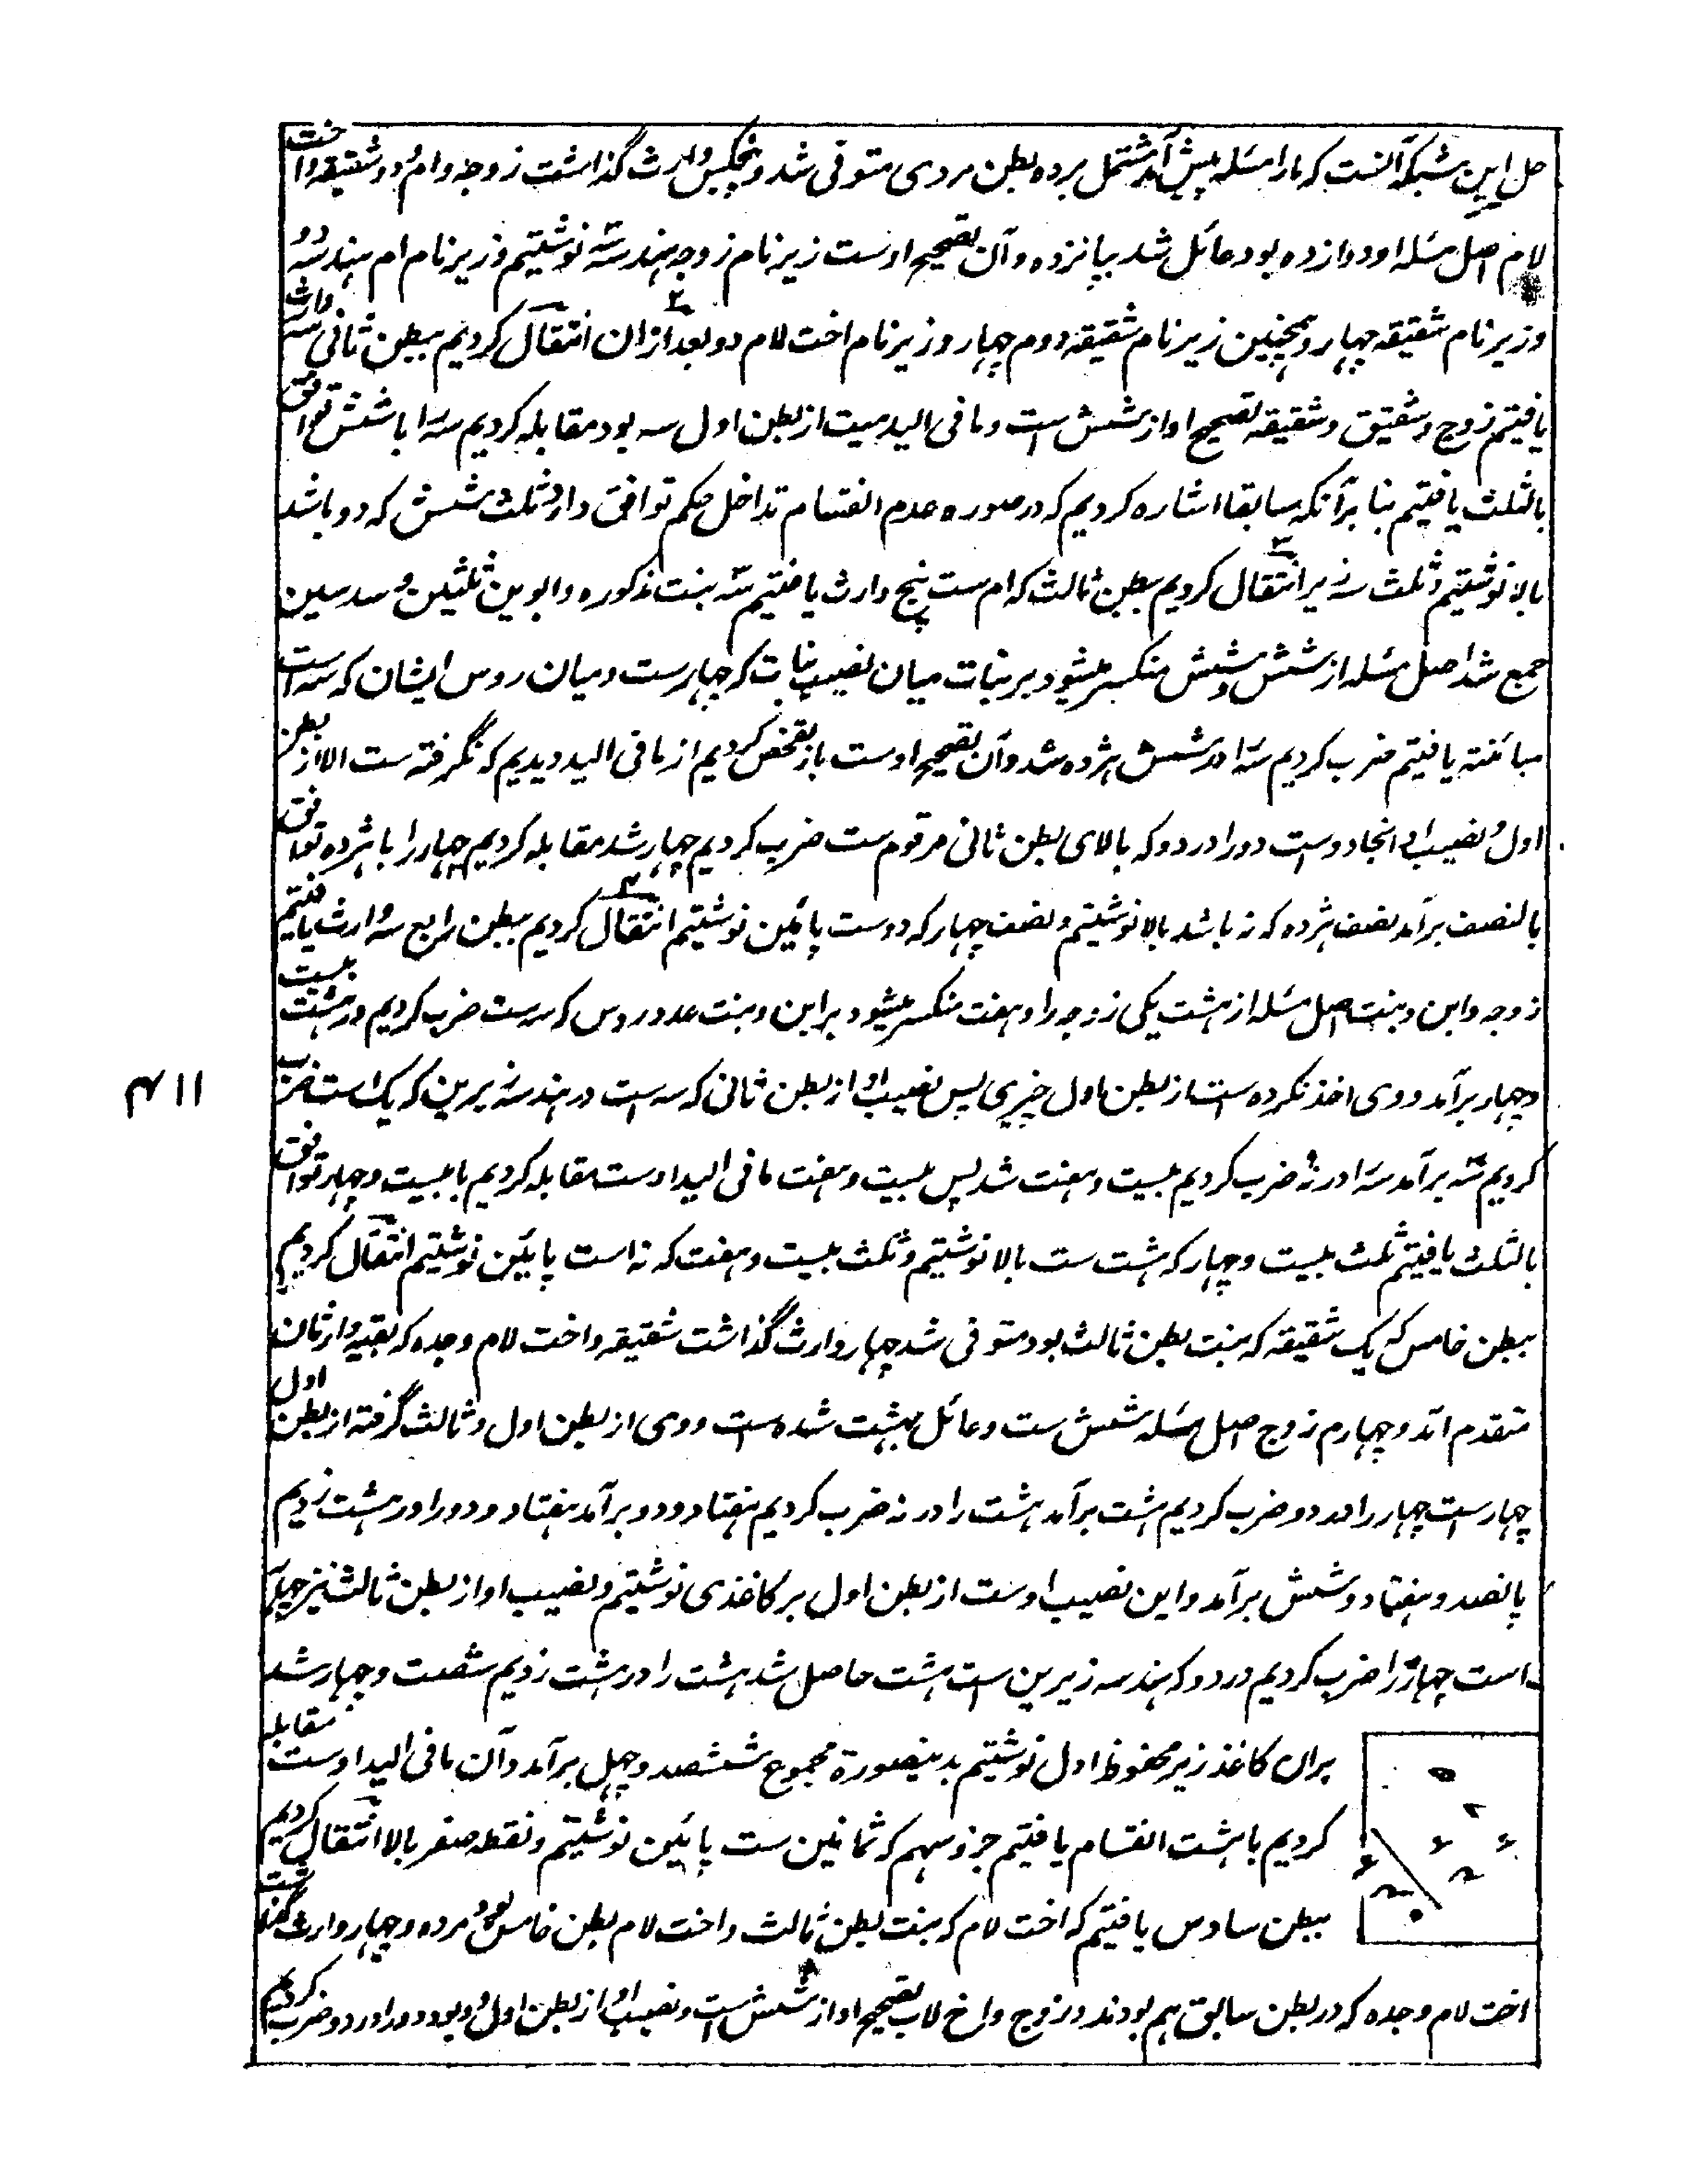 حل این شبکه آنست که ما را مسئله پیش آمد مشتمل بر ده بطن مردی متوفی شد و پنج کس وارث گذاشت زوجه و ام و دو شقیقه و اخت
لام اصل مسئله او دوازده بود عائل شد بپانزده و آن تصحیح اوست زیر نام زوجه هندسه سه نوشتیم و زیر نام ام هندسه دو
و زیر نام شقیقه چهار و همچنین زیر نام شقیقه دوم چهار و زیر نام اخت لام دو بعد ازان انتقال کردیم ببطن ثانی سه وارث
یافتیم زوج و شقیق و شقیقه تصحیح او از شش است و ما فی الید میت از بطن اول سه بود مقابله کردیم سه را با شش توافق
بالثلث یافتیم بنا بر آنکه سابقا اشاره کردیم که در صوره عدم انقسام تداخل حکم توافق دارد ثلث شش که دو باشد
بالا نوشتیم و ثلث سه زیر انتقال کردیم ببطن ثالث که ام ست پنج وارث یافتیم سه بنت مذکوره و ابوین ثلثین و سدسین
جمع شد اصل مسئله از شش و شش منکسر میشود بر بنات میان نصیب بنات که چهارست و میان روس ایشان که سه است
مباینة یافتیم ضرب کردیم سه را در شش هژده شد و آن تصحیح اوست باز تفحص کردیم از ما فی الید دیدیم که نگرفته ست الا از بطن
اول و نصیب او آنجا دوست دو را در دو که بالای بطن ثانی مرقوم ست ضرب کردیم چهار شد مقابله کردیم چهار را با هژده توافق
بالنصف برآمد نصف هژده که نه باشد بالا نوشتیم و نصف چهار که دوست پائین نوشتیم انتقال کردیم ببطن رابع سه وارث یافتیم
زوجه و ابن و بنت اصل مسئله از هشت یکی زوجه را و هفت منکسر میشود بر ابن و بنت عدد روس که سه ست ضرب کردیم در هشت بیست
و چهار برآمد و وی اخذ نکرده ست از بطن اول چیزی پس نصیب او از بطن ثانی که سه است در هندسه زیرین که یک است ضرب
کردیم سه برآمد سه را در نه ضرب کردیم بیست و هفت شد پس بیست و هفت ما فی الید اوست مقابله کردیم با بیست و چهار توافق
بالثلث یافتیم ثلث بیست و چهار که هشت ست بالا نوشتیم و ثلث بیست و هفت که نه است پائین نوشتیم انتقال کردیم
ببطن خامس که یک شقیقه که بنت بطن ثالث بود متوفی شد چهار وارث گذاشت شقیقه و اخت لام و جده که بقیه وارثان
متقدم اند و چهارم زوج اصل مسئله شش ست و عائل بهشت شده است و وی از بطن اول و ثالث گرفته از بطن اول
چهارست چهار را در دو ضرب کردیم هشت برآمد هشت را در نه ضرب کردیم هفتاد و دو برآمد هفتاد و دو را در هشت زدیم
پانصد و هفتاد و شش برآمد و این نصیب اوست از بطن اول بر کاغذی نوشتیم و نصیب او از بطن ثالث نیز چهار
است چهار را ضرب کردیم در دو که هندسه زیرین ست هشت حاصل شد هشت را در هشت زدیم شصت و چهار شد
بران کاغذ زیر محفوظ اول نوشتیم بدینصورة مجموع ششصد و چهل برآمد و آن ما فی الید اوست مقابله
کردیم با هشت انقسام یافتیم جزو سهم که ثمانین ست پائین نوشتیم و نقطه صفر بالا انتقال کردیم
ببطن سادس یافتیم که اخت لام که بنت بطن ثالث و اخت لام بطن خامس بود مرده و چهار وارث گذاشت
اخت لام و جده که در بطن سابق هم بودند و زوج و اخ لاب تصحیح او از شش ست و نصیب او از بطن اول دو بود دو را در دو ضرب کردیم
۴۱۱